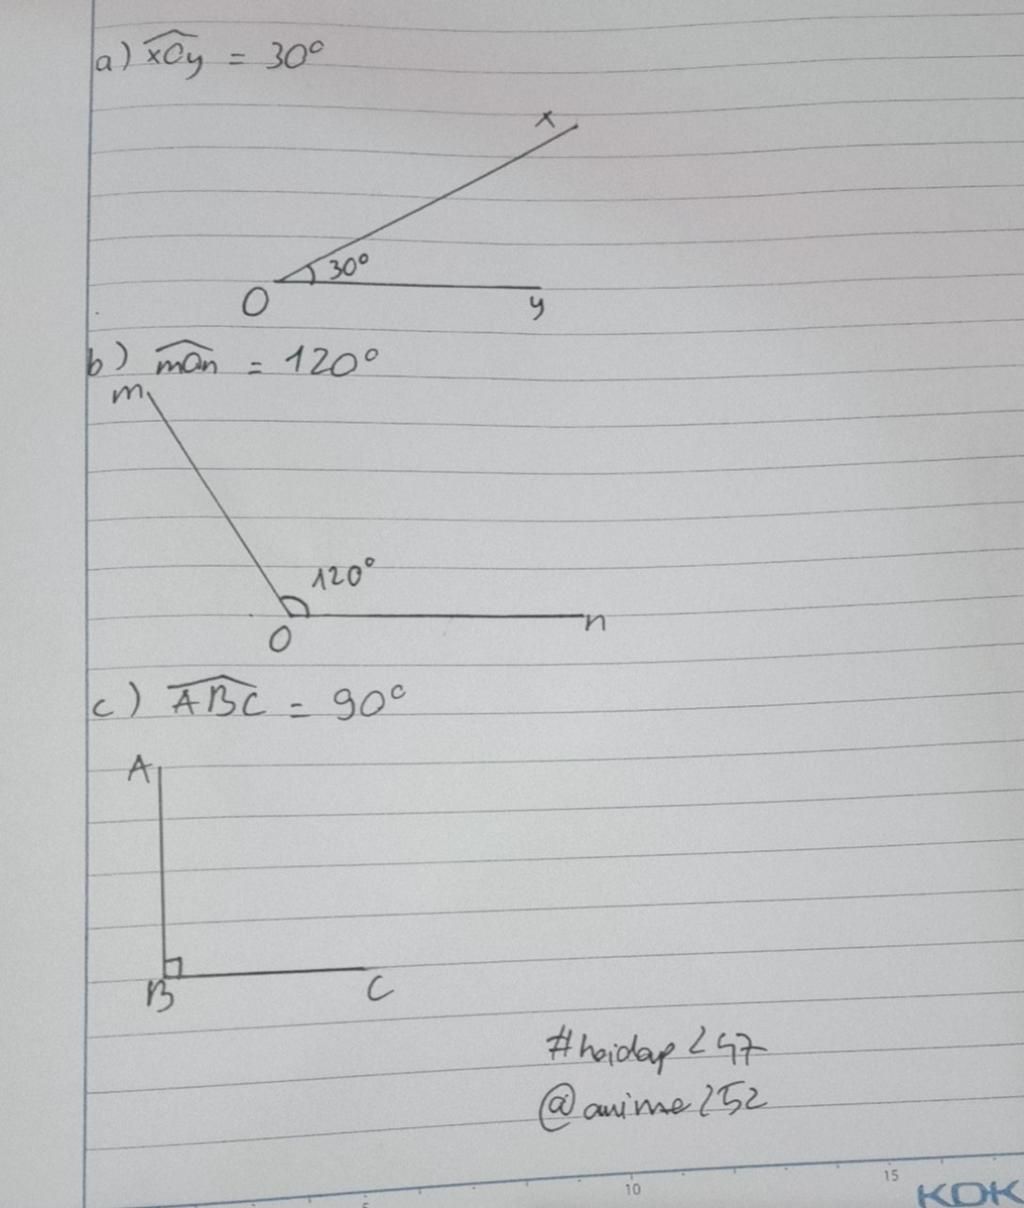 a) xOy = 30°
x
30°
O
y
b) mOn = 120°
m
120°
O
n
c) ABC = 90°
A
B
C
#hoidap247
@anime252
5
10
15
KOK